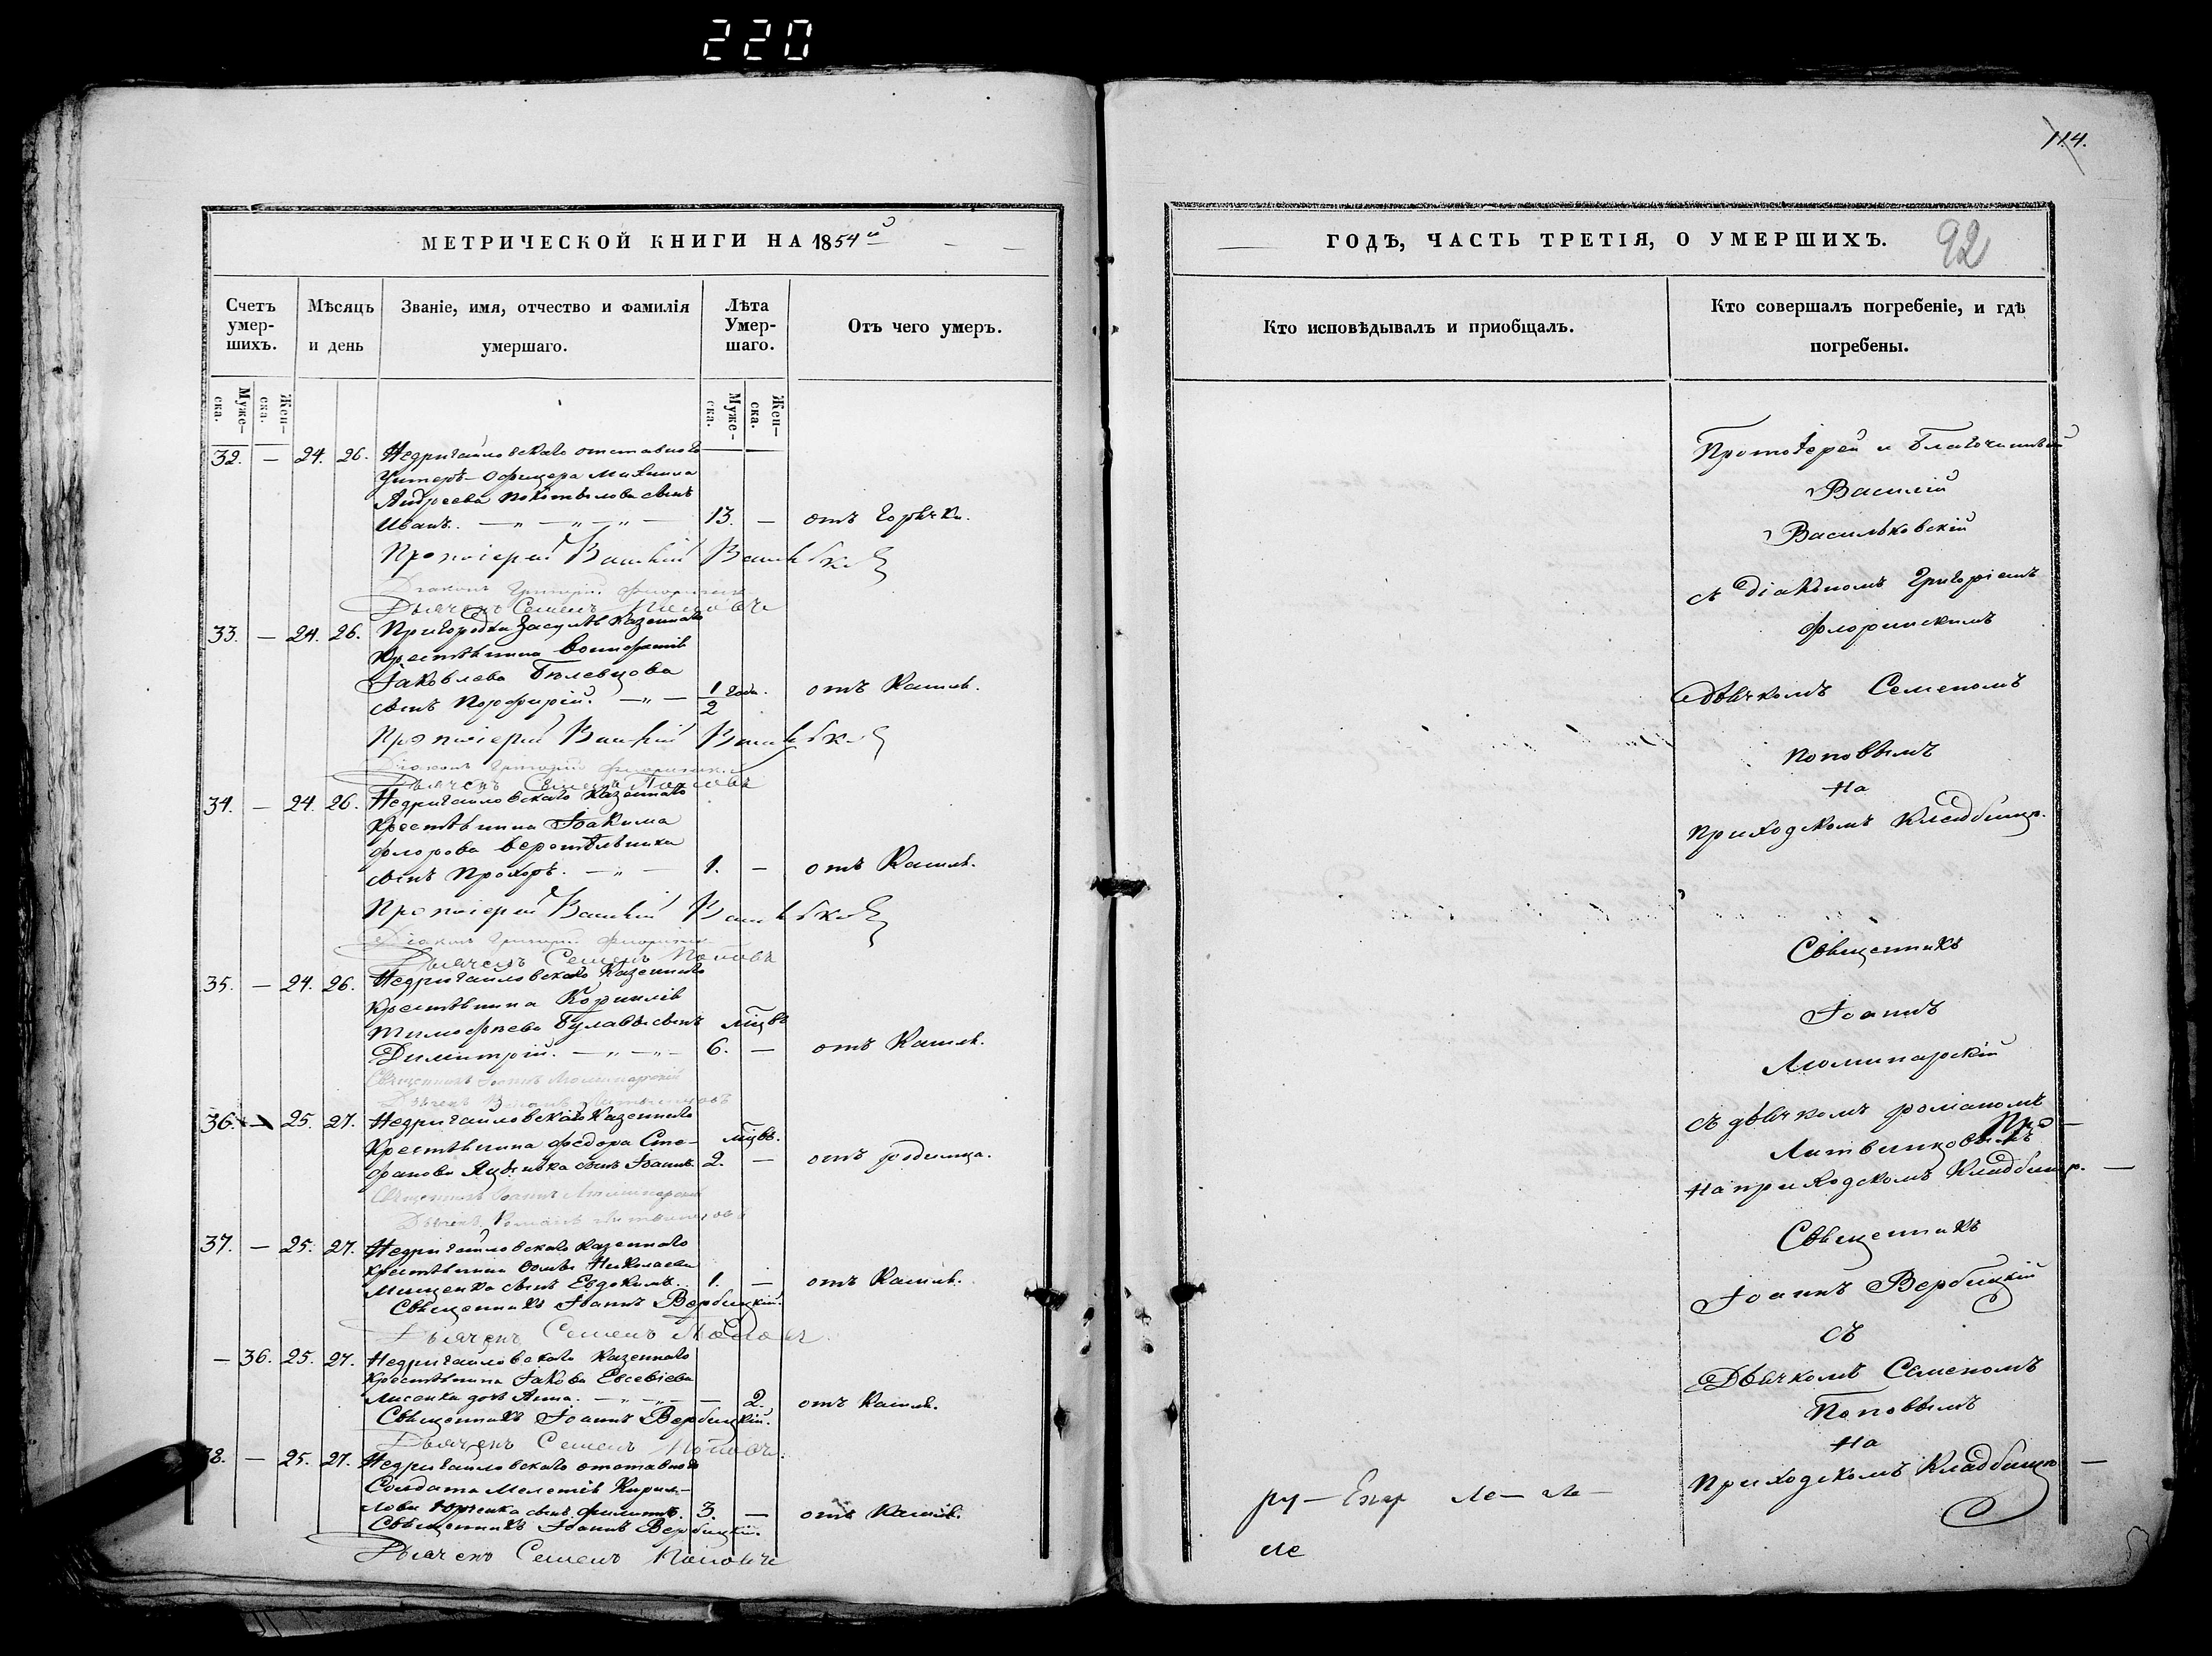 220
114.
МЕТРИЧЕСКОЙ КНИГИ НА 1854й
Счетъ умер-шихъ.
Мѣсяцъ и день
Званіе, имя, отчество и фамилія умершаго.
Лѣта Умер-шаго.
Отъ чего умеръ.
Муже-ска.
Жен-ска.
Муже-ска.
Жен-ска.
32. — 24. 26. Недригайловскаго отставнаго
Унтеръ-Офицера Михаила
Андреева Покотылова сынъ
Иванъ. — „ — „ — 13. — отъ Горячки.
Протоіерей Василій Васильковскій
Діаконъ Григорій Флоринскій
Дьячекъ Семенъ Поповъ
33. — 24. 26. Пригородка Засулья Казеннаго
Крестьянина Вонифатія
Іаковлева Бѣлевцова
сынъ Порфирій. — „ — 1/2 года. отъ Кашля.
Протоіерей Василій Васильковскій
Діаконъ Григорій Флоринскій
Дьячекъ Семенъ Поповъ
34. — 24. 26. Недригайловскаго Казеннаго
Крестьянина Іоакима
Флорова Веретѣльника
сынъ Прохоръ. — „ — 1. — отъ Кашля.
Протоіерей Василій Васильковскій
Діаконъ Григорій Флоринскій
Дьячекъ Семенъ Поповъ
35. — 24. 26. Недригайловскаго Казеннаго
Крестьянина Корнилія
Тимофѣева сынъ мцвъ
Димитрій. — „ — „ — 6. — отъ Кашля.
Священникъ Іоаннъ Люминарскій
Дьячекъ Романъ Литвинцовъ
36. — 25. 27. Недригайловскаго Казеннаго
Крестьянина Федора Сте- мцвъ.
фанова Яценка сынъ Іоаннъ. 2. — отъ родимца.
Священникъ Іоаннъ Люминарскій
Дьячекъ Романъ Литвинцовъ
37. — 25. 27. Недригайловскаго Казеннаго
крестьянина Фомы Николаева
Мищенка сынъ Евдокимъ. 1. — отъ Кашля.
Священникъ Іоаннъ Вербицкій.
Дьячекъ Семенъ Поповъ
— 36. 25. 27. Недригайловскаго Казеннаго
Крестьянина Іакова Евсевіева
Лисенка дочь Анна. — „ — „ — 2. отъ Кашля.
Священникъ Іоаннъ Вербицкій.
Дьячекъ Семенъ Поповъ
38. — 25. 27. Недригайловскаго отставнаго
Солдата Мелетія Кирил-
лова Юрченка сынъ Филиппъ. 3. — отъ Кашля.
Священникъ Іоаннъ Вербицкій.
Дьячекъ Семенъ Поповъ
ГОДѢ, ЧАСТЬ ТРЕТІЯ, О УМЕРШИХЪ. 92
Кто исповѣдывалъ и приобщалъ.
Кто совершалъ погребеніе, и гдѣ погребены.
Протоіерей и Благочинный
Василій
Васильковскій
съ Діакономъ Григоріемъ
Флоринскимъ
Дьячкомъ Семеномъ
Поповымъ
На
Приходскомъ Кладбищѣ.
Священникъ
Іоаннъ
Люминарскій
съ дьячкомъ Романомъ
Литвинцовымъ
На приходскомъ Кладбищѣ. —
Священникъ
Іоаннъ Вербицкій
съ
Дьячкомъ Семеномъ
Поповымъ
На
Приходскомъ Кладбищѣ —